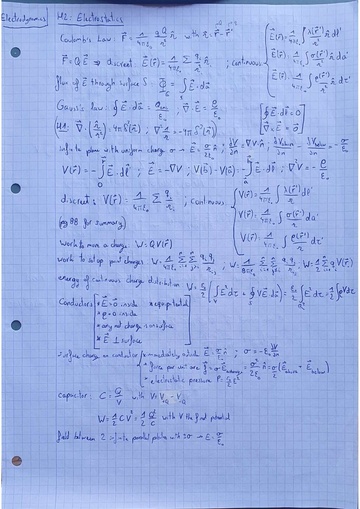 Electrodynamics
H2: Electrostatics
Coulomb's Law: F⃗ = 1/4πε₀ qQ/r² r̂ with r⃗ = r⃗ - r⃗'
F⃗ = Q E⃗ → discreet: E⃗(r⃗) = 1/4πε₀ Σ qᵢ/rᵢ² r̂ᵢ ; continuous { E⃗(r⃗) = 1/4πε₀ ∫ λ(r⃗')/r² r̂ dl'
E⃗(r⃗) = 1/4πε₀ ∫ σ(r⃗')/r² r̂ da'
E⃗(r⃗) = 1/4πε₀ ∫ ρ(r⃗')/r² r̂ dτ'
flux of E⃗ through surface S: Φ_E = ∫ E⃗·da⃗
Gauss's Law: ∮ E⃗·da⃗ = Q_enc/ε₀ ; ∇·E⃗ = ρ/ε₀
[ ∮ E⃗·dl⃗ = 0
∇×E⃗ = 0 ]
(H1: ∇·(r̂/r²) = 4πδ³(r⃗) ; ∇² 1/r = -4πδ³(r⃗))
infinite plane with uniform charge σ → E⃗ = σ/2ε₀ n̂ ; ∂V/∂n = ∇V·n̂ ; ∂V above/∂n - ∂V below/∂n = -σ/ε₀
V(r⃗) = -∫ E⃗·dl⃗ ; E⃗ = -∇V ; V(b⃗) - V(a⃗) = -∫ E⃗·dl⃗ ; ∇²V = -ρ/ε₀
discreet: V(r⃗) = 1/4πε₀ Σ qᵢ/rᵢ ; continuous: { V(r⃗) = 1/4πε₀ ∫ λ(r⃗')/r dl'
V(r⃗) = 1/4πε₀ ∫ σ(r⃗')/r da'
V(r⃗) = 1/4πε₀ ∫ ρ(r⃗')/r dτ'
(pg 88 for summary)
work to move a charge: W = QV(r⃗)
work to setup point charges
energy of continuous charge distribution W = ε₀/2 (∫ E² dτ + ∮ V E⃗·da⃗) = ε₀/2 ∫ E² dτ = 1/2 ∫ ρV dτ
Conductors [ * E⃗ = 0 inside * equipotential
* ρ = 0 inside
* any net charge on surface
* E⃗ ⊥ surface ]
surface charge on conductor & immediately outside E⃗ = σ/ε₀ n̂ ; σ = -ε₀ ∂V/∂n
* force per unit area f⃗ = σ E⃗average = σ²/2ε₀ n̂ = σ/2 (E⃗above + E⃗below)
* electrostatic pressure P = ε₀/2 E²
capacitor: C = Q/V with V = V₊ - V₋
W = 1/2 CV² = 1/2 Q²/C with V the final potential
field between 2 infinite parallel plates with ±σ → E = σ/ε₀